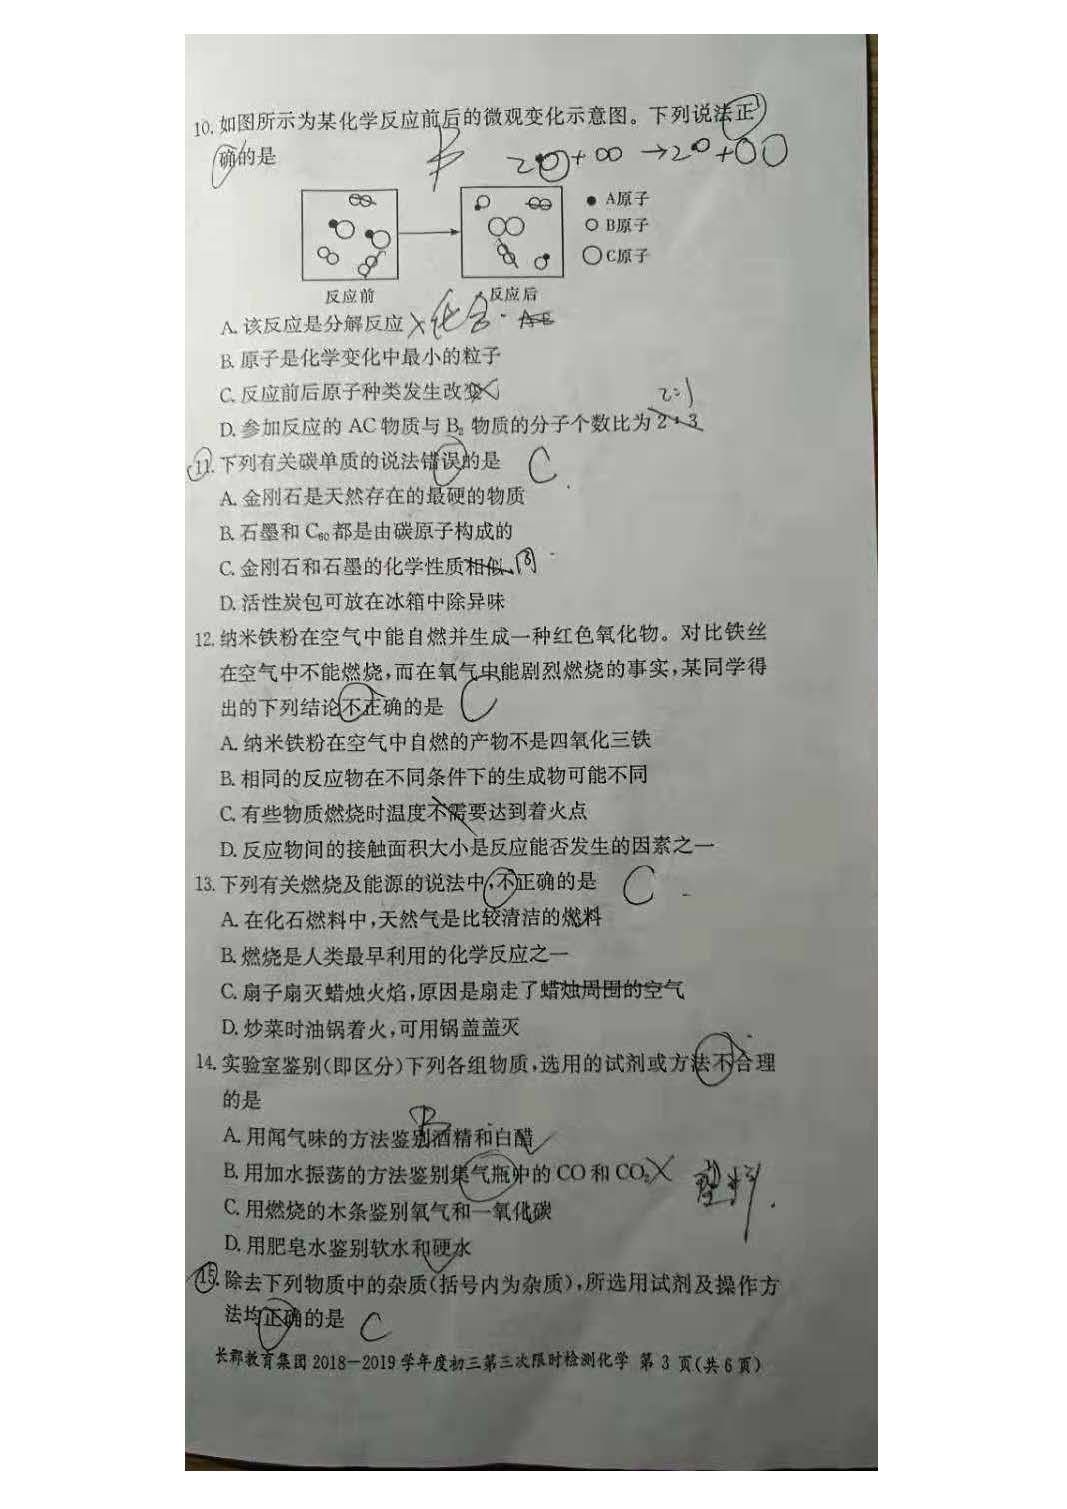 10. 如图所示为某化学反应前后的微观变化示意图。下列说法正
确的是
B
A原子
B原子
C原子
反应前
反应后
A. 该反应是分解反应 ×化合
B. 原子是化学变化中最小的粒子
C. 反应前后原子种类发生改变×
2:1
D. 参加反应的 AC 物质与 B₂ 物质的分子个数比为 2:3
11. 下列有关碳单质的说法错误的是 C
A. 金刚石是天然存在的最硬的物质
B. 石墨和 C₆₀ 都是由碳原子构成的
C. 金刚石和石墨的化学性质相似 同
D. 活性炭包可放在冰箱中除异味
12. 纳米铁粉在空气中能自燃并生成一种红色氧化物。对比铁丝
在空气中不能燃烧,而在氧气中能剧烈燃烧的事实,某同学得
出的下列结论不正确的是 C
A. 纳米铁粉在空气中自燃的产物不是四氧化三铁
B. 相同的反应物在不同条件下的生成物可能不同
C. 有些物质燃烧时温度不需要达到着火点
D. 反应物间的接触面积大小是反应能否发生的因素之一
13. 下列有关燃烧及能源的说法中,不正确的是 C
A. 在化石燃料中,天然气是比较清洁的燃料
B. 燃烧是人类最早利用的化学反应之一
C. 扇子扇灭蜡烛火焰,原因是扇走了蜡烛周围的空气
D. 炒菜时油锅着火,可用锅盖盖灭
14. 实验室鉴别(即区分)下列各组物质,选用的试剂或方法不合理
的是
B
A. 用闻气味的方法鉴别酒精和白醋
B. 用加水振荡的方法鉴别集气瓶中的 CO 和 CO₂× 塑料
C. 用燃烧的木条鉴别氧气和一氧化碳
D. 用肥皂水鉴别软水和硬水
15. 除去下列物质中的杂质(括号内为杂质),所选用试剂及操作方
法均正确的是 C
长郡教育集团2018-2019学年度初三第三次限时检测化学 第 3 页(共6页)